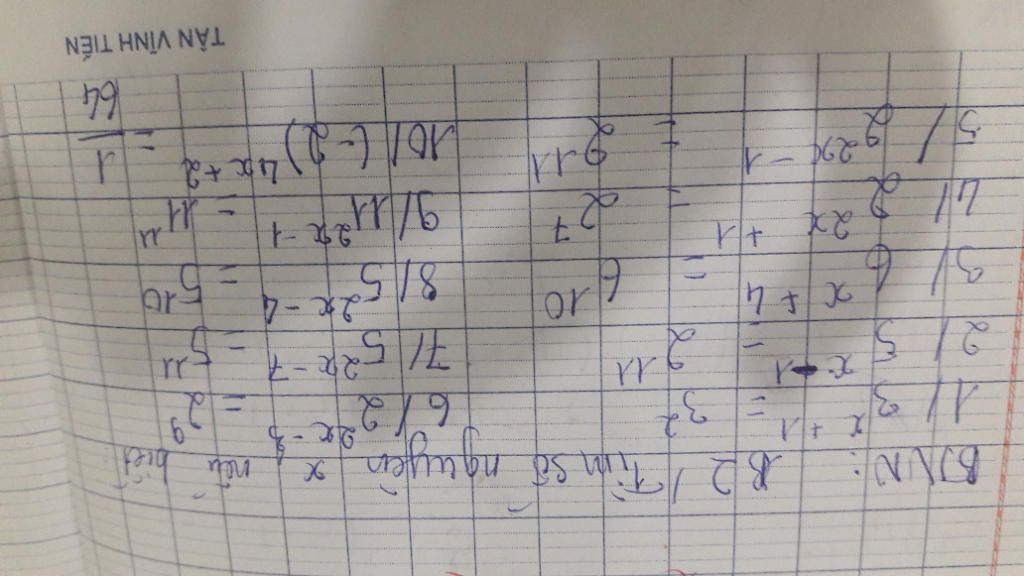 BTVN: B2/ Tìm số nguyên x nếu biết
1/ 3^{x+1} = 3^2    6/ 2^{2x-3} = 2^9
2/ 5^{x-1} = 2^{11}    7/ 5^{2x-7} = 5^{11}
3/ 6^{x+4} = 6^{10}    8/ 5^{2x-4} = 5^{10}
4/ 2^{2x+1} = 2^7    9/ 11^{2x-1} = 11^{11}
5/ 2^{2x-1} = 2^{11}    10/ (-2)^{4x+2} = 1/64
TÂN VĨNH TIẾN